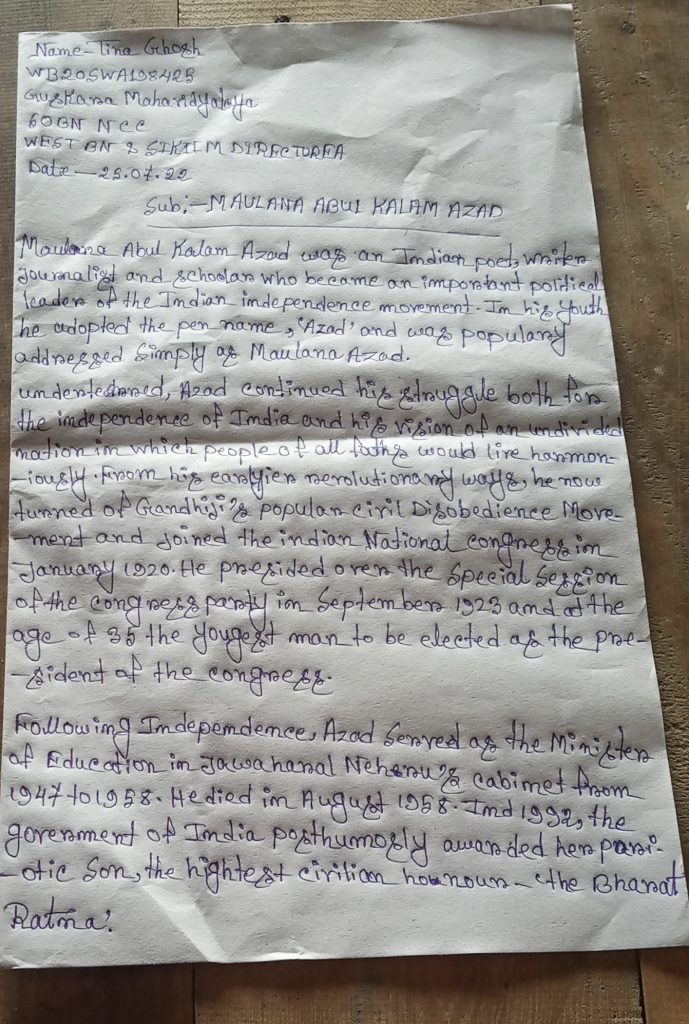 Name - Tina Ghosh
WB20SWA198425
Guskara Mahavidyalaya
60BN NCC
WEST BN & SIKKIM DIRECTOREA
Date — 25.07.22
Sub:- MAULANA ABUL KALAM AZAD
Maulana Abul Kalam Azad was an Indian poet, writer
journalist and schoolar who became an important political
leader of the Indian independence movement. In his youth
he adopted the pen name, 'Azad' and was populary
addressed simply as Maulana Azad.
undenterred, Azad continued his struggle both for
the independence of India and his vision of an undivided
nation in which people of all faths would live harmon-
-iously. From his earlyier revolutionary ways, he now
turned of Gandhiji's popular civil Disobedience Move-
-ment and joined the indian National congress in
January 1920. He presided over the special session
of the congress party in September 1923 and at the
age of 35 the yougest man to be elected as the pre-
-sident of the congress.
Following Independence, Azad served as the Minister
of Education in Jawaharal Nehru's cabinet from
1947 to 1958. He died in August 1958. Ind 1992, the
government of India posthumosly awarded her pari-
-otic son, the hightest civilian hounour - 'the Bharat
Ratna'.